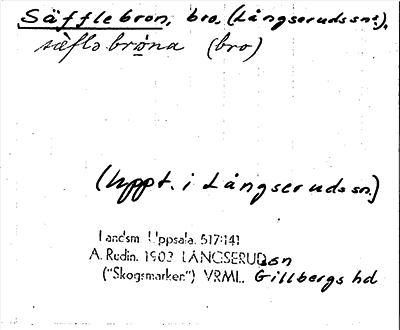 Säfflebron, bro, (Långseruds sn?),
sæ̀flə brǫ̀na (bro)
(Uppt. i Långseruds sn.)
Landsm. Uppsala. 517:141
A. Rudin. 1903 LÅNGSERUD sn
("Skogsmarker.") VRML. Gillbergs hd